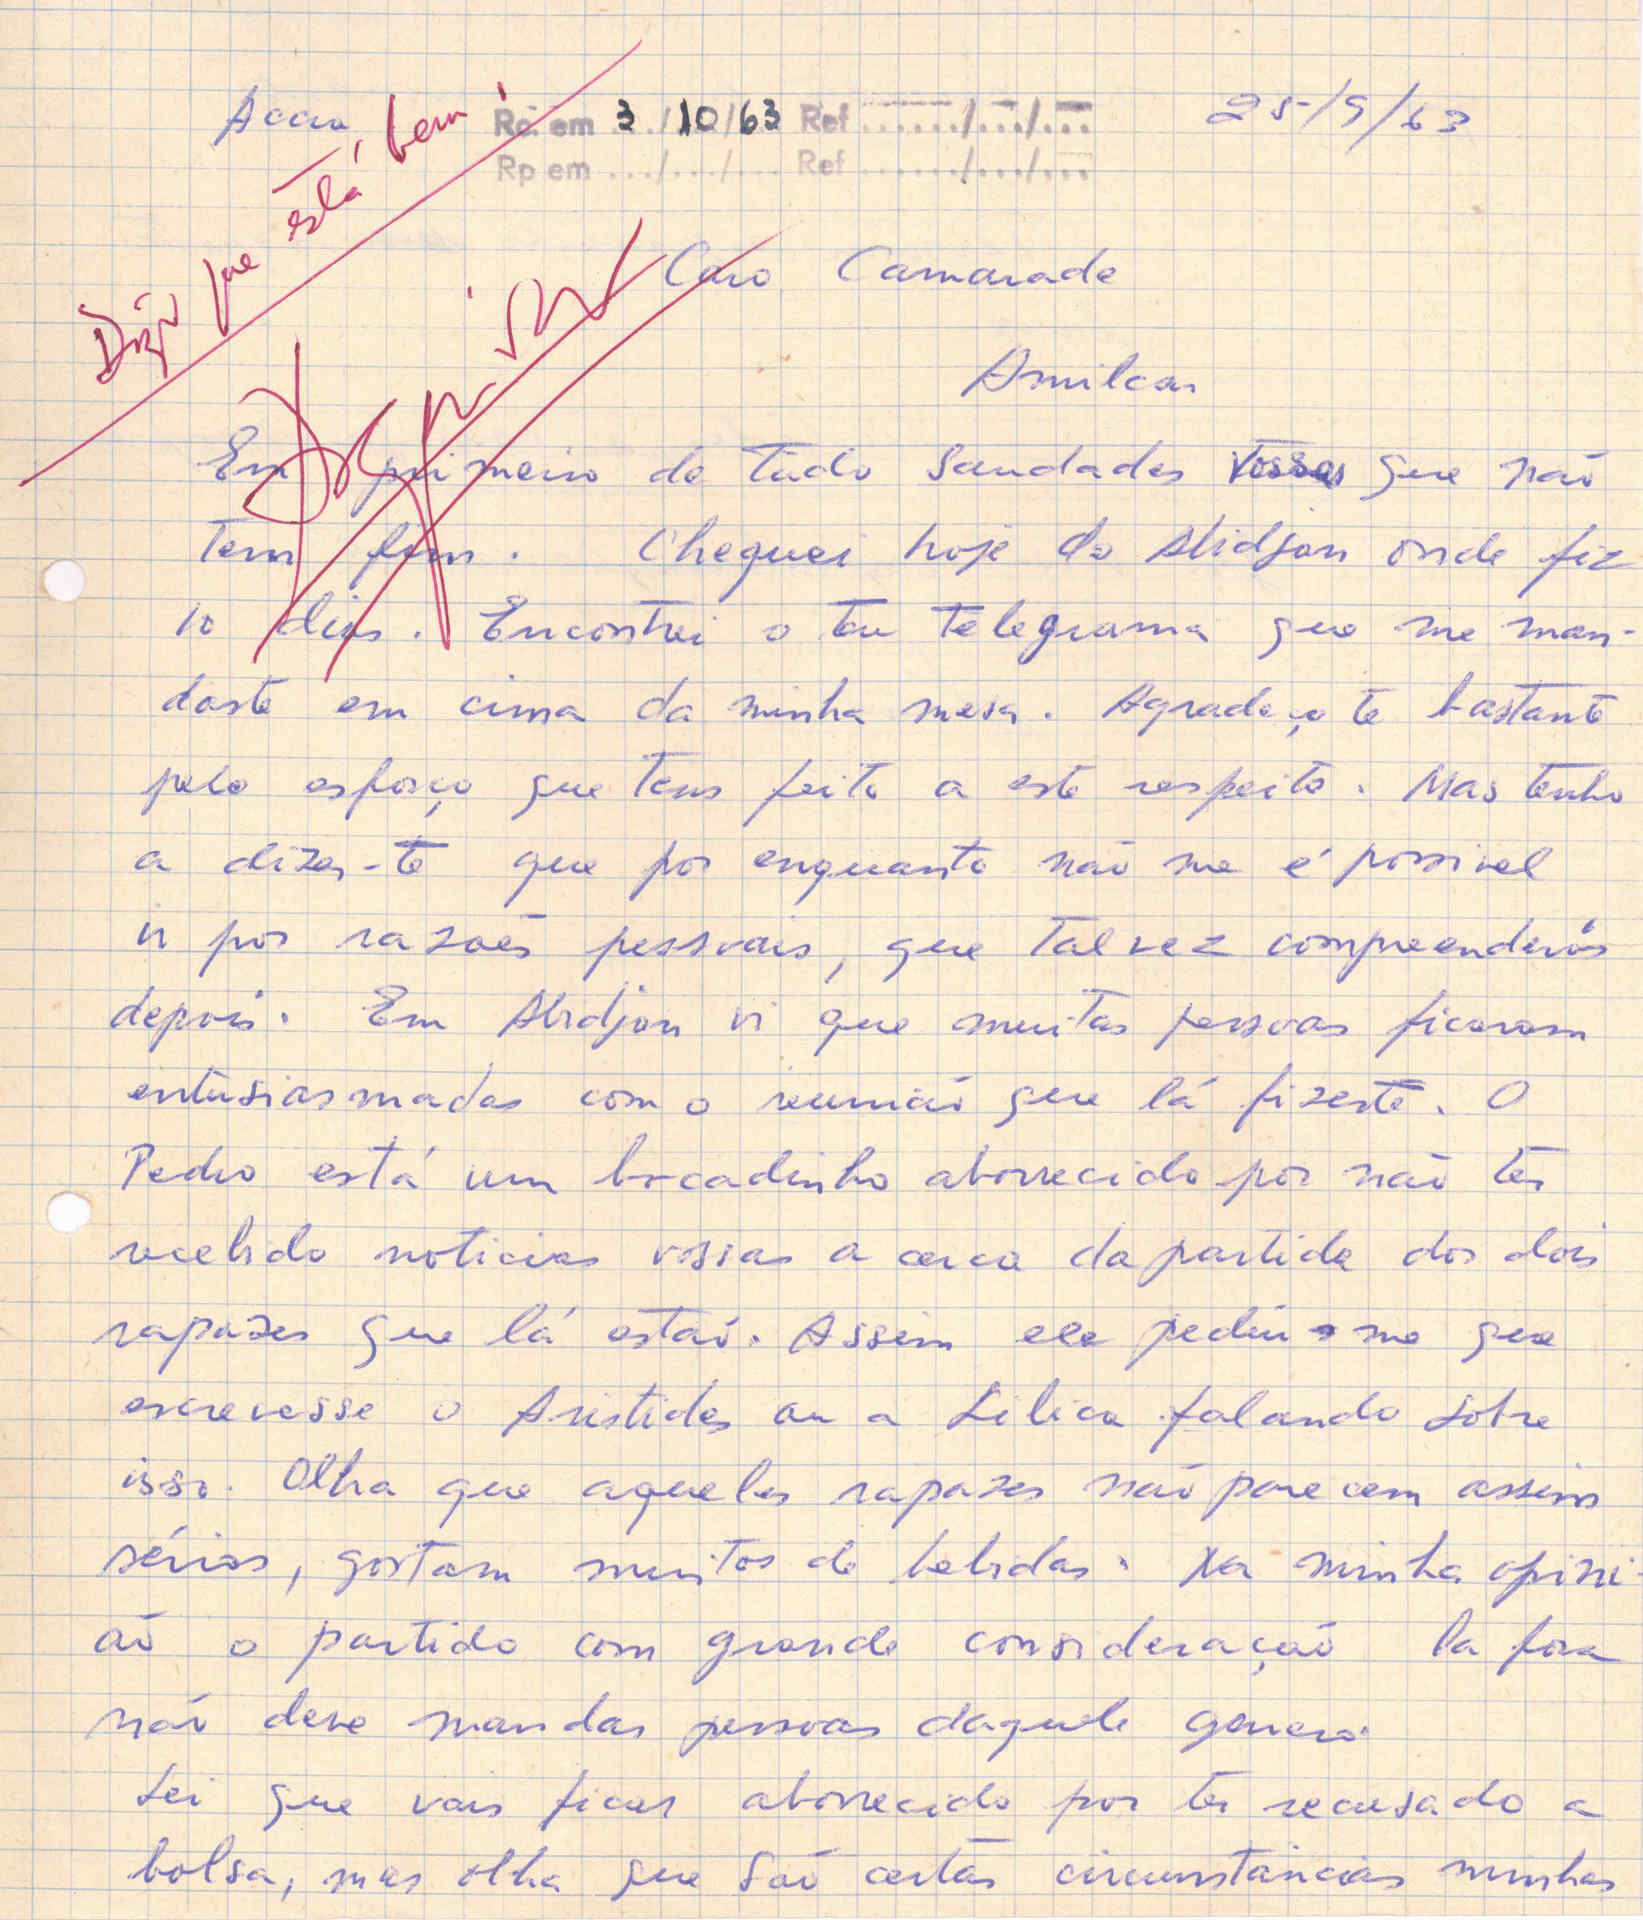 Accra,
25/9/63
Rc. em 3/10/63 Ref ....../.../...
Rp em .../.../... Ref ....../.../...
Diga que está bem
Caro Camarada
Amilcar
Em primeiro de tudo Saudades vossas que não
tem fim. Cheguei hoje do Abidjan onde fiz
10 dias. Encontrei o teu telegrama que me man-
daste em cima da minha mesa. Agradeço te bastante
pelo esforço que tens feito a este respeito. Mas tenho
a dizer-te que por enquanto não me é possivel
ir por razões pessoais, que talvez compreenderás
depois. Em Abidjan vi que muitas pessoas ficaram
entusiasmadas com o reunião que lá fizeste. O
Pedro está um bocadinho aborrecido por não ter
recebido noticias vossas a cerca da partida dos dois
rapazes que lá estão. Assim ele pediu-me que
escrevesse o Aristides ou a Lilica falando sobre
isso. Olha que aqueles rapazes não parecem assim
sérios, gostam muitos de bebidas. Na minha opini-
ão o partido com grande consideração la fora
não deve mandar pessoas daquele genero.
Sei que vais ficar aborrecido por ter recusado a
bolsa, mas olha que são certas circunstâncias minhas